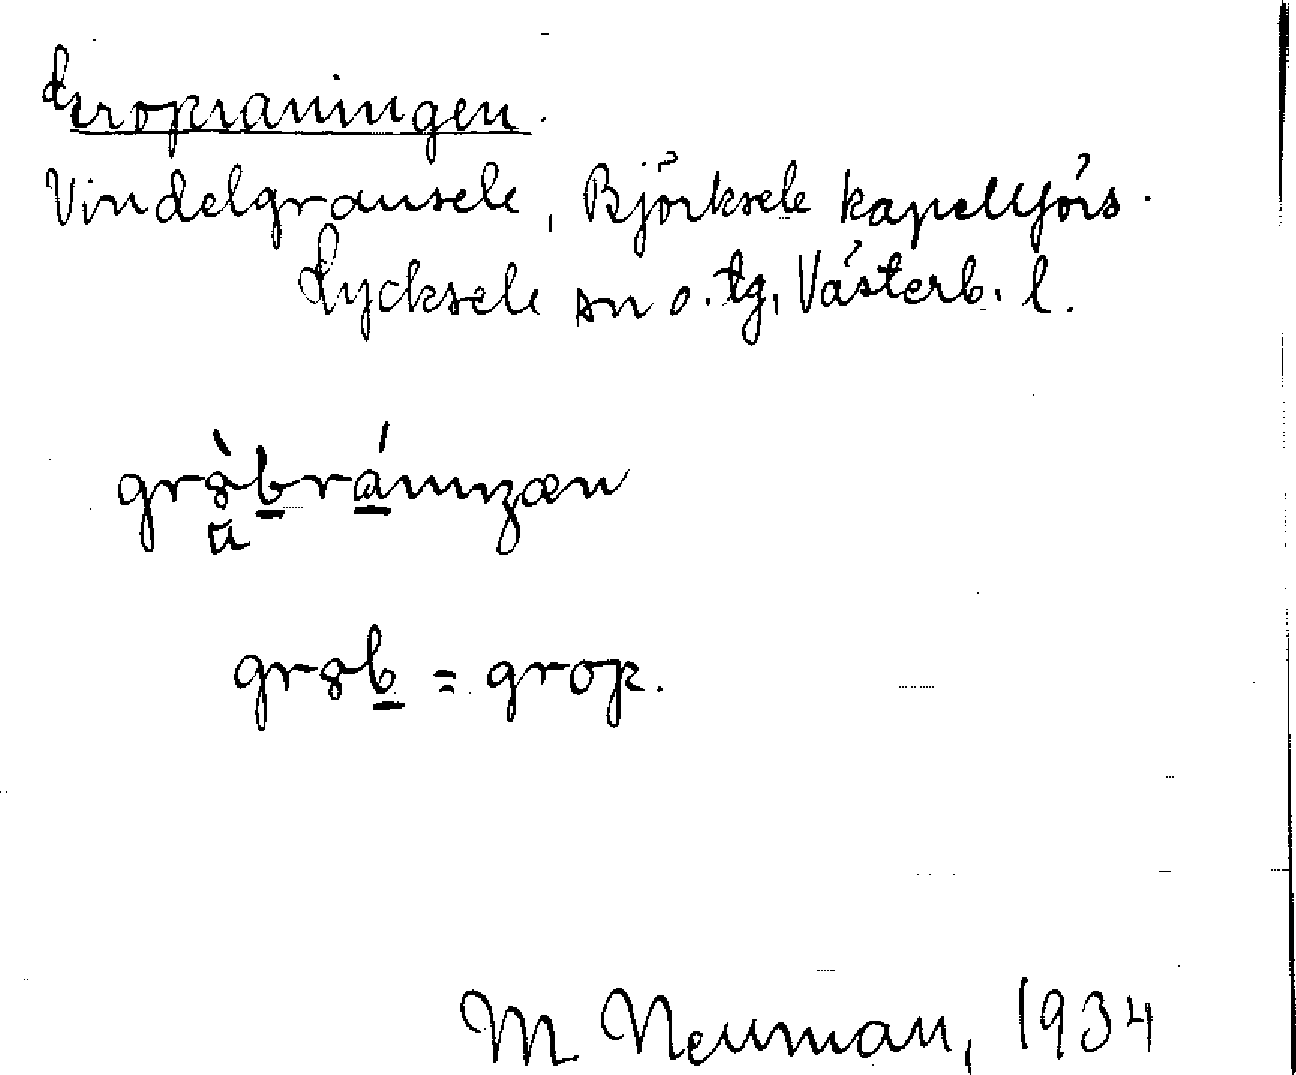 Gropraningen.
Vindelgransele, Björksele kapellförs.
Lycksele sn o. tg, Västerb. l.
gr8̀bránnŋæn
ū
gr8b = grop.
M Neuman, 1934